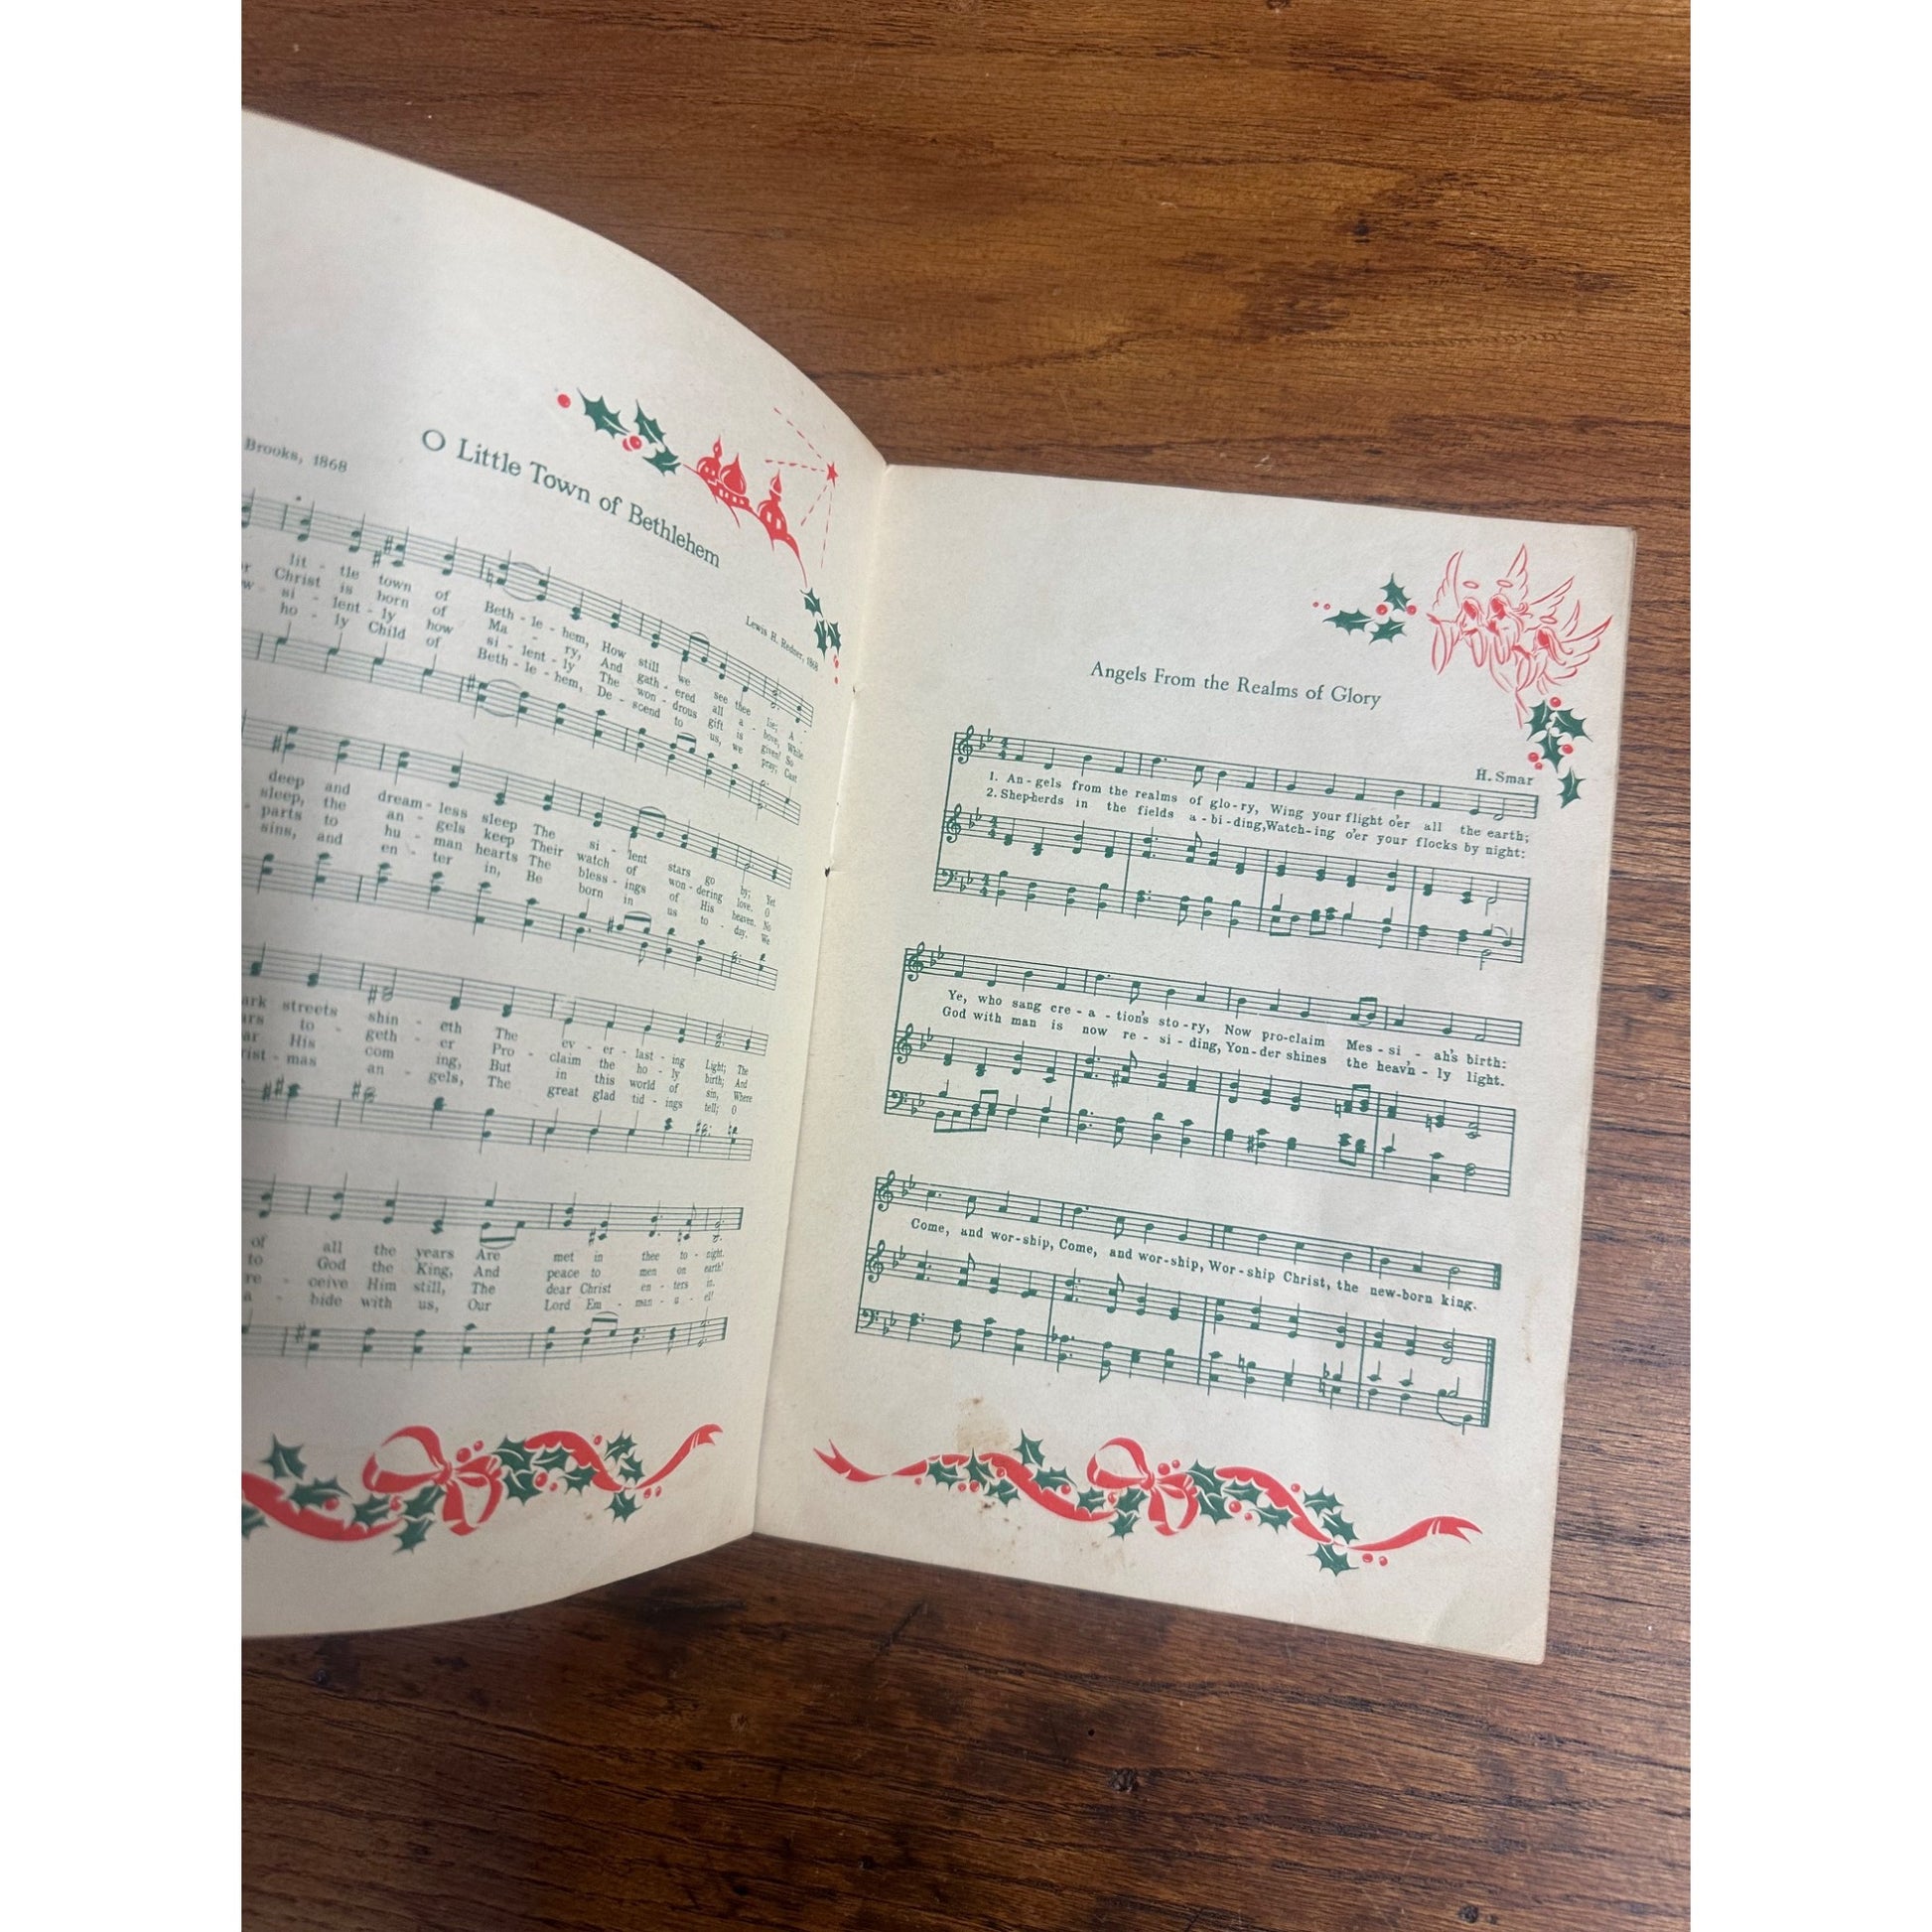 Brooks, 1868
O Little Town of Bethlehem
Lewis H. Redner, 1868
lit - tle town of Beth - le - hem, How still we see thee lie; A -
Christ is born of Ma - ry, And gath - ered all a - bove, While
si - lent - ly how si - lent - ly The won - drous gift is given! So
ho - ly Child of Beth - le - hem, De - scend to us, we pray; Cast
deep and dream - less sleep The si - lent stars go by; Yet
sleep, the an - gels keep Their watch of won - dering love. O
parts to hu - man hearts The bless - ings of His heaven. No
sins, and en - ter in, Be born in us to - day. We
ark streets shin - eth The ev - er - last - ing Light; The
ars to - geth - er Pro - claim the ho - ly birth; And
ar His com - ing, But in this world of sin, Where
rist - mas an - gels, The great glad tid - ings tell; O
of all the years Are met in thee to - night.
to God the King, And peace to men on earth!
re - ceive Him still, The dear Christ en - ters in.
a - bide with us, Our Lord Em - man - u - el!
Angels From the Realms of Glory
H. Smar
1. An - gels from the realms of glo - ry, Wing your flight o'er all the earth;
2. Shep-herds in the fields a - bi - ding, Watch - ing o'er your flocks by night:
Ye, who sang cre - a - tion's sto - ry, Now pro-claim Mes - si - ah's birth:
God with man is now re - si - ding, Yon - der shines the heav'n - ly light.
Come, and wor-ship, Come, and wor-ship, Wor - ship Christ, the new-born king.